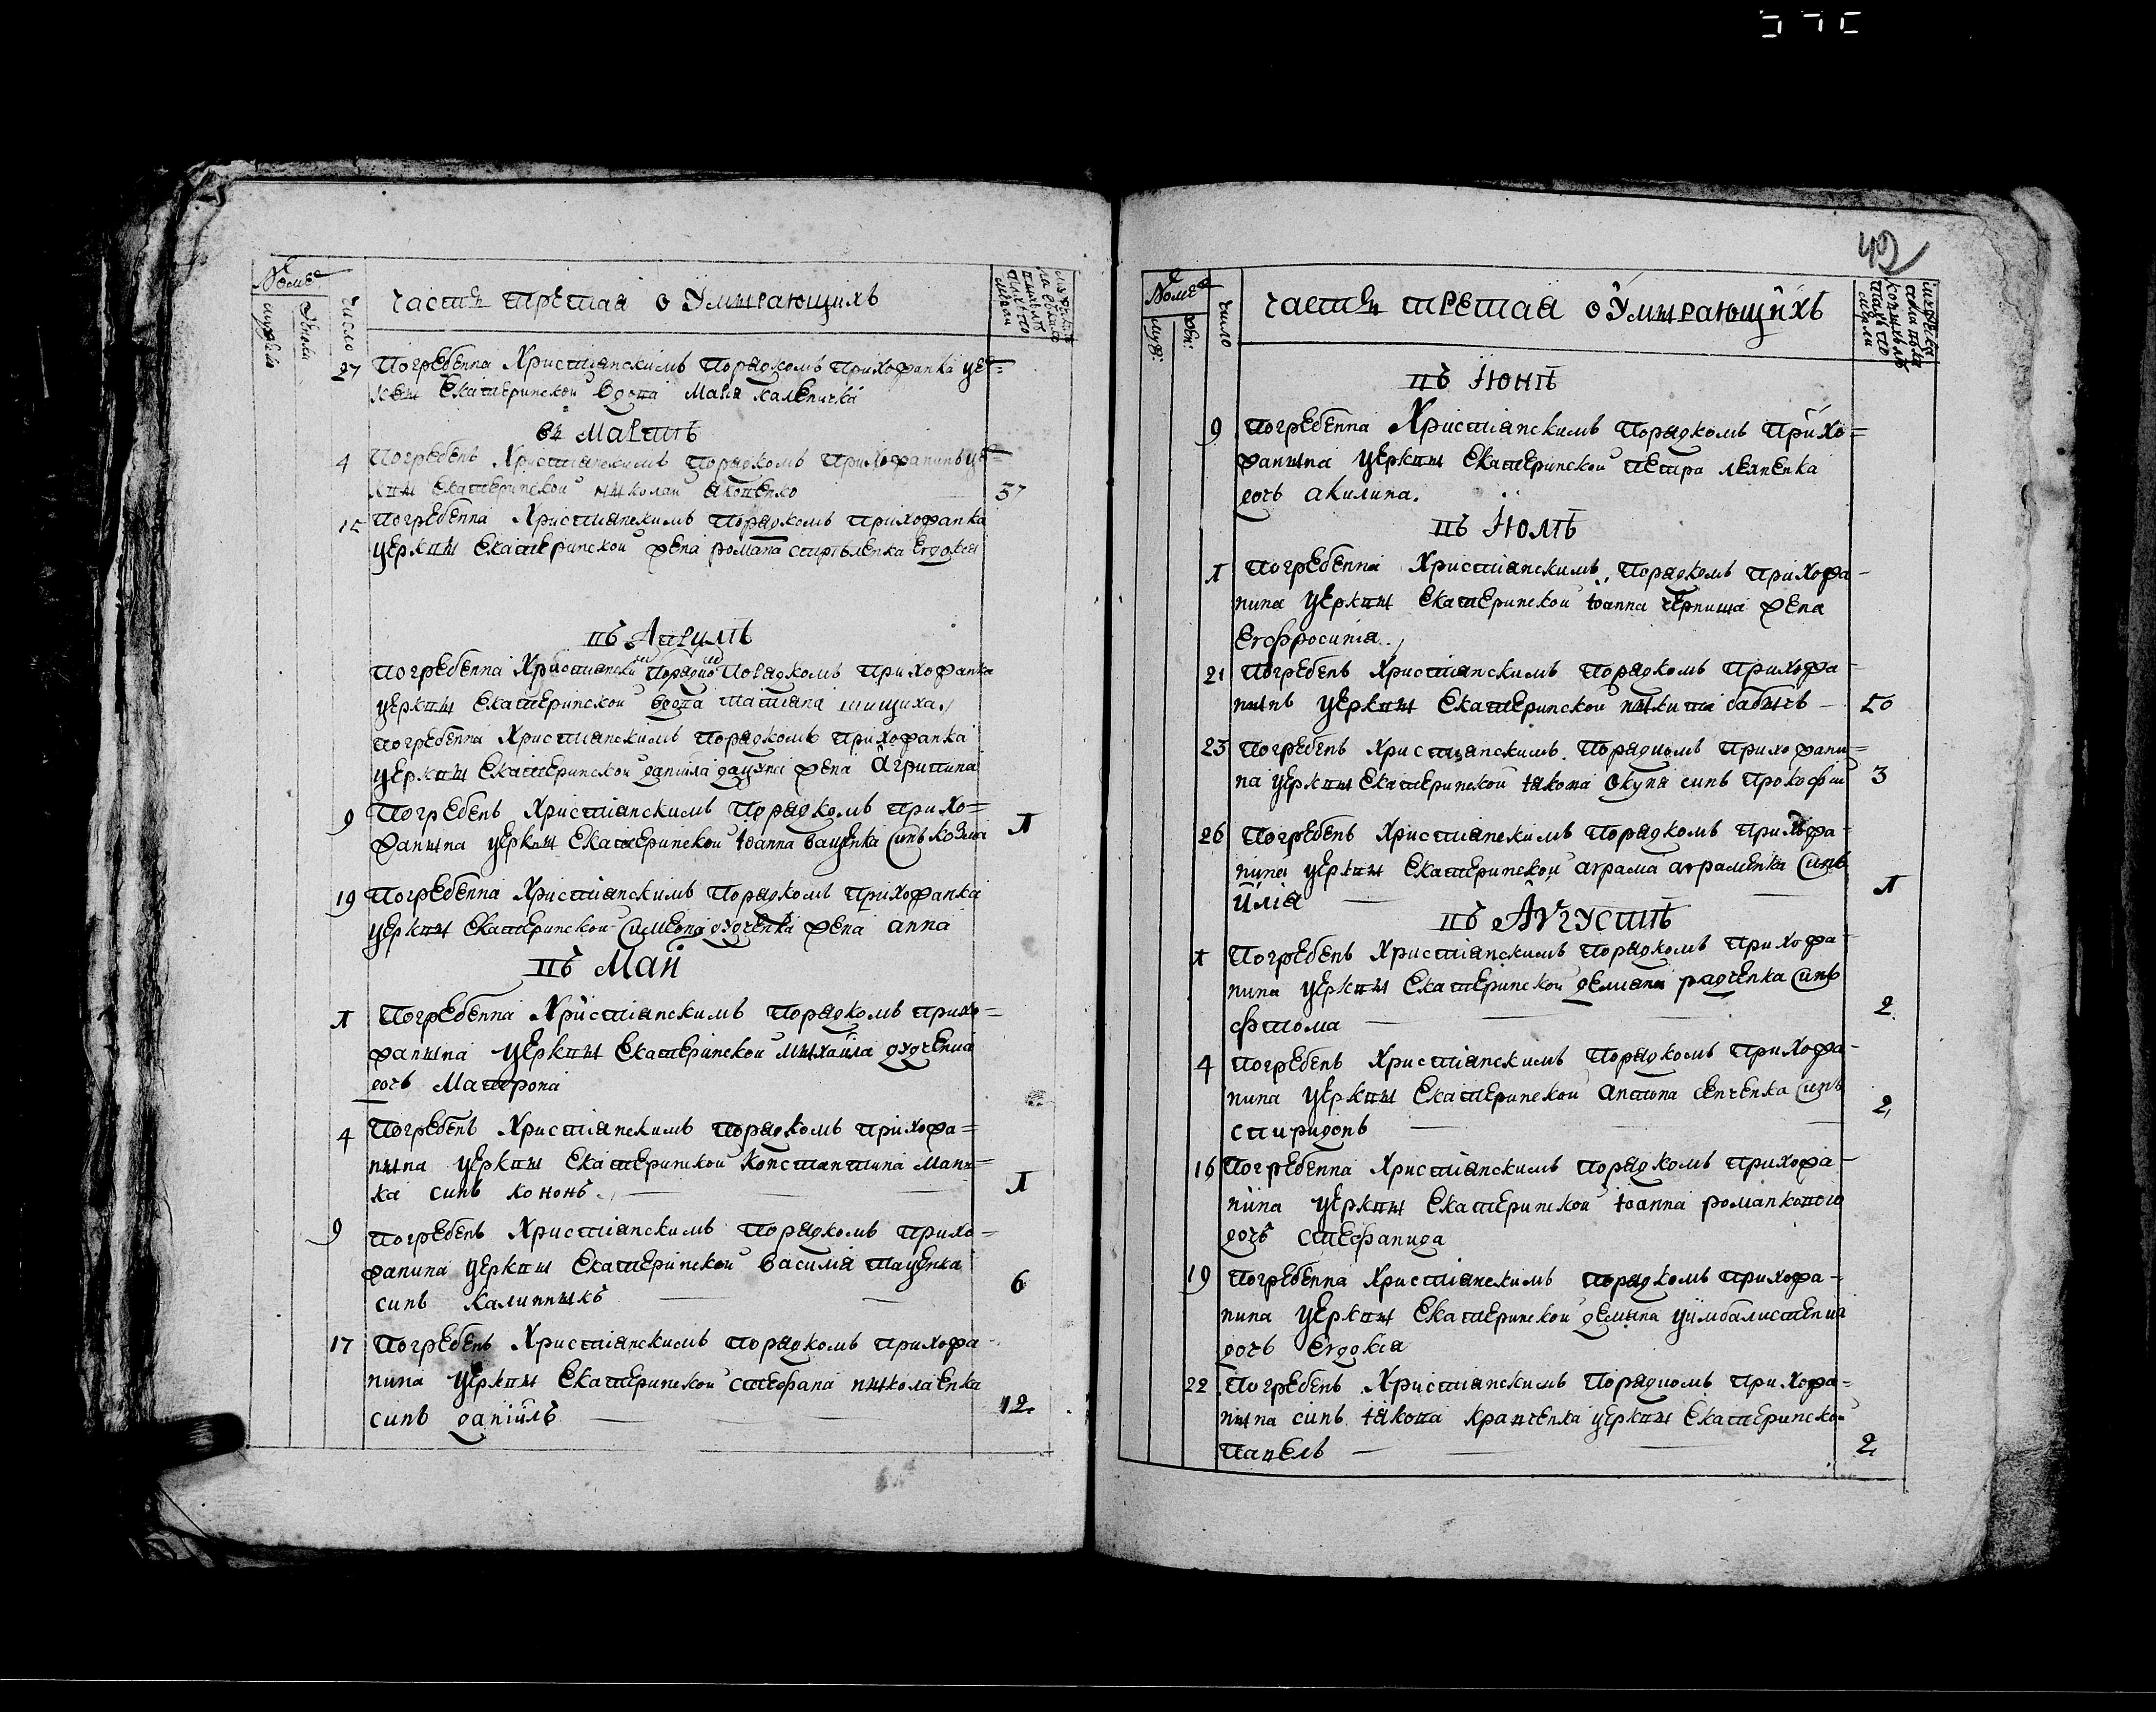 49
Номеръ
мужеска
женска
число
часть третая о умирающихъ
27 Погребенна Христианскимъ порядкомъ прихожанка цер=
квы Екатеринской вдова Мария каленичка
въ Мартѣ
4 Погребенъ Христианскимъ порядкомъ прихожанинъ цер=
квы Екатеринской николай яковенко 57
15 Погребенна Христианскимъ порядкомъ прихожанка
церквы Екатеринской жена романа Евдокия
въ Априлѣ
погребенна Христиански порядкомъ прихожанка
церквы Екатеринской вдова татиана шищиха.
погребенна Христианскимъ порядкомъ прихожанка
церквы Екатеринской даниила жена Агрипина
9 Погребенъ Христианскимъ порядкомъ прихо=
жанына церквы Екатеринской иоанна ващенка синъ козма 1
19 Погребенна Христианскимъ порядкомъ прихожанка
церквы Екатеринской симеона дудченка жена анна
въ Май
1 Погребенна Христианскимъ порядкомъ прихо=
жанына церквы Екатеринской мыхайла дудченка
дочъ Матрона
4 Погребенъ Христианскимъ порядкомъ прихожа=
нына церквы Екатеринской константина маны=
ка синъ кононъ 1
9 погребенъ Христианскимъ порядкомъ прихо=
жанина церквы Екатеринской василия таценка
синъ калинныкъ 6
17 Погребенъ Христианскимъ порядкомъ прихожа-
нина церквы Екатеринской стефана ныколаенка
синъ даниилъ 12
Номеръ
муж:
жен:
число
часты третая о умырающихъ
въ Июнѣ
9 погребенна Христианскимъ порядкомъ прихо=
жанына церквы Екатеринской петра
дочъ акилина.
въ Июлѣ
1 погребенна Христианскимъ порядкомъ прихожа-
нина церквы Екатеринской иоанна черниша жена
Евфросиния
21 Погребенъ Христианскимъ порядкомъ прихожа-
нынъ церквы Екатеринской ныкита бабычъ 50
23 Погребенъ Христианскимъ порядкомъ прихожани=
на церквы Екатеринской иякова окуня синъ прокофий 3
26 Погребенъ Христианскимъ порядкомъ прихожа=
нина церквы Екатеринской аврама авраменка синъ
илия 1
въ Августѣ
1 Погребенъ Христианскимъ порядкомъ прихожа-
нина церквы Екатеринской демяна радченка синъ
фтома 2
4 погребенъ Христианскимъ порядкомъ прихожа-
нина церквы Екатеринской антона сенченка синъ
спиридонъ 2
16 Погребенна Христианскимъ порядкомъ прихожа-
нина церквы Екатеринской иоанна романкового
дочъ стефанида
19 погребенна Христианскимъ порядкомъ прихожа-
нина церквы Екатеринской демяна цимбалистенка
дочъ Евдокия
22 Погребенъ Христианскимъ порядкомъ прихожа=
нына синъ иякова кравченка церквы Екатеринской
павелъ 2